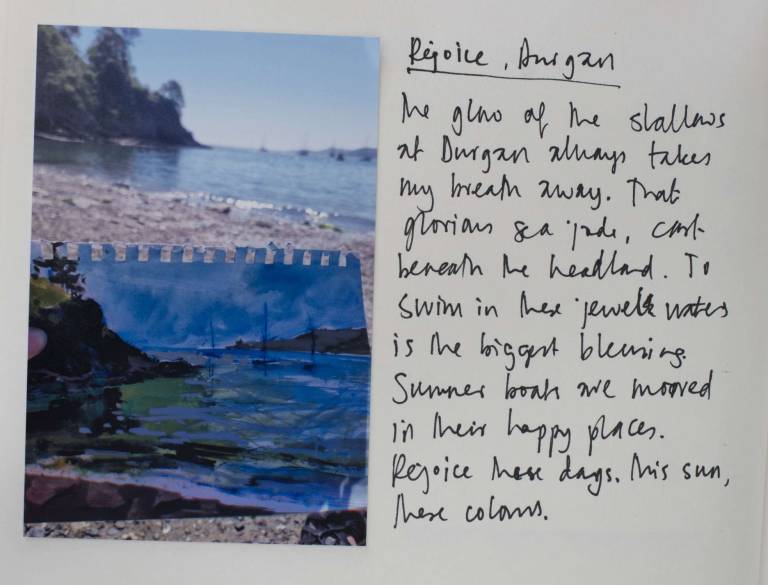 Rejoice, Durgan
The glow of the shallows
at Durgan always takes
my breath away. That
glorious sea jade, cast
beneath the headland. To
swim in these jewelle waters
is the biggest blessing.
Summer boats are moored
in their happy places.
Rejoice these days. This sun,
these colours.